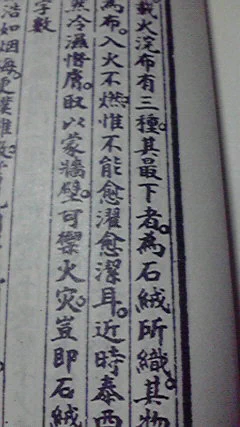 載火浣布有三種。其最下者。為石絨所織。其物
為布。入火不燃。惟不能愈濯愈潔耳。近時泰西
冷濕慘膚。取以蒙牆壁。可禦火災。豈即石絨
字數
浩如烟海。更僕難